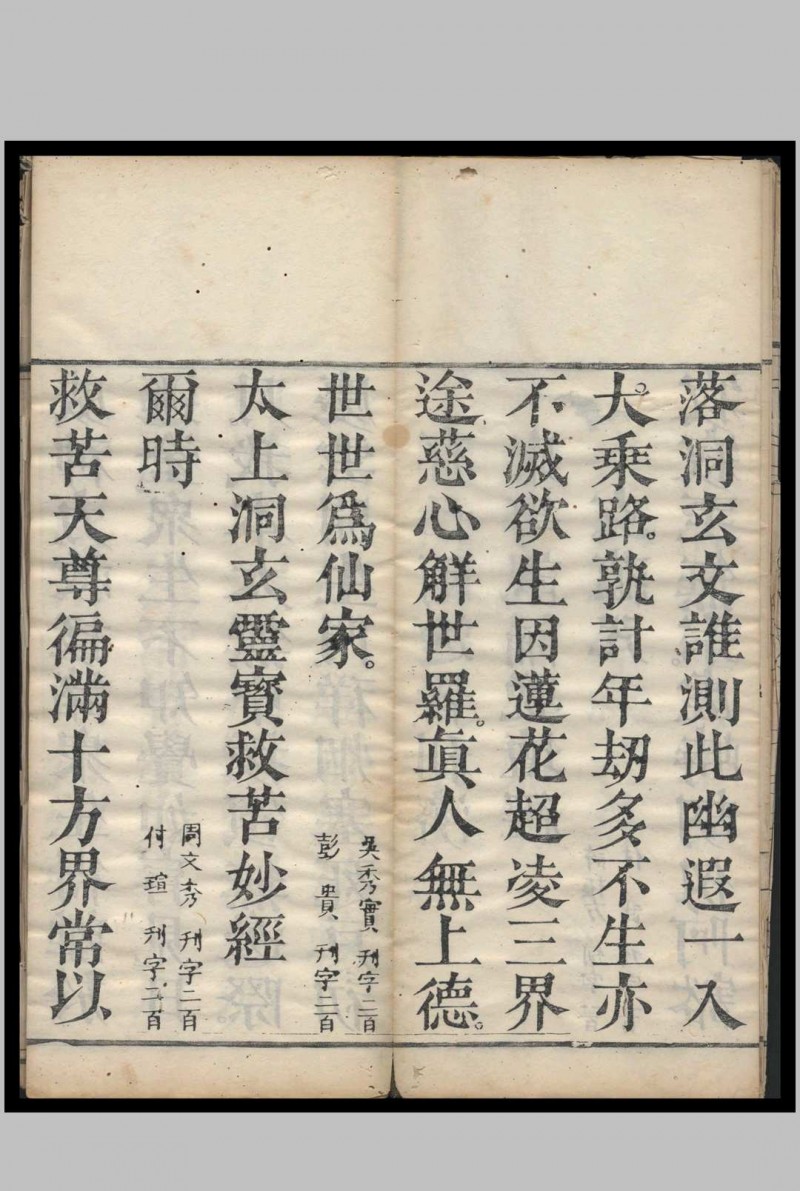 落洞玄文誰測此幽遐一入
大乗路。孰計年劫多不生亦
不滅欲生因蓮花超凌三界
途慈心解世羅。眞人無上德。
世世爲仙家。
吳秀實刋字二百
彭貴刋字二百
太上洞玄靈寶救苦妙經
爾時
周文秀刋字二百
付瑄刋字二百
救苦天尊徧滿十方界常以